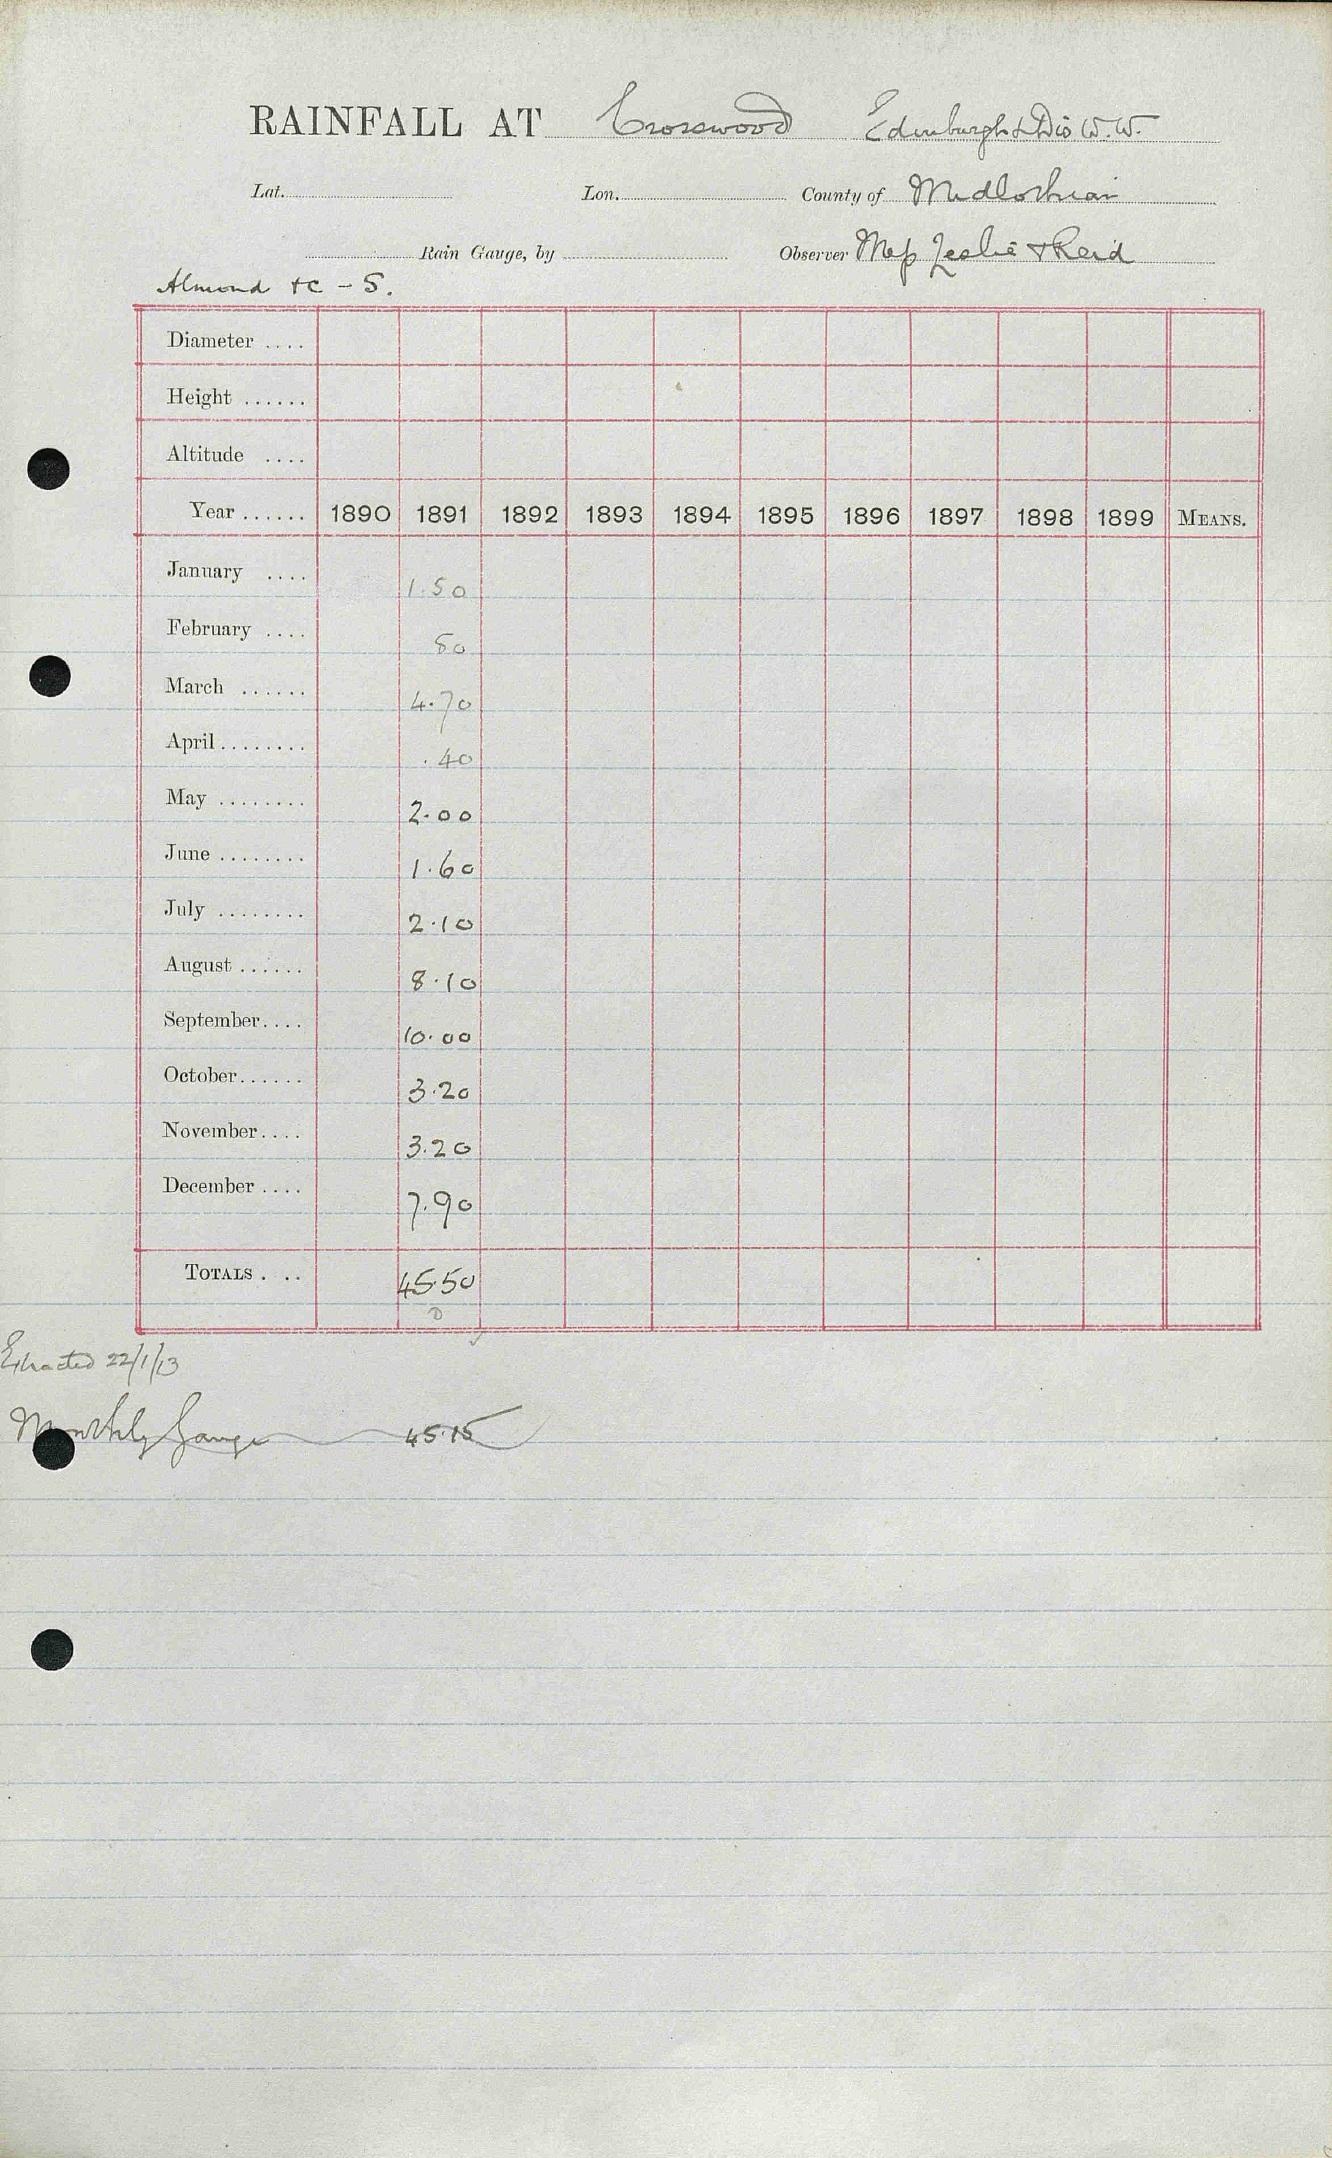 RAINFALL AT Crosswood Edinburgh & Dis W.W.
Lat. Lon. County of Midlothian
Rain Gauge, by Observer Mess Leslie & Reid
Almond &c - S.
Diameter ....
Height ......
Altitude ....
Year ...... 1890 1891 1892 1893 1894 1895 1896 1897 1898 1899 MEANS.
January .... 1.50
February .... 80
March ...... 4.70
April ........ .40
May ........ 2.00
June ........ 1.60
July ........ 2.10
August ...... 8.10
September .... 10.00
October ...... 3.20
November .... 3.20
December .... 7.90
TOTALS . .. 45.50
D
Extracted 22/1/13
Monthly Gauge 45.15